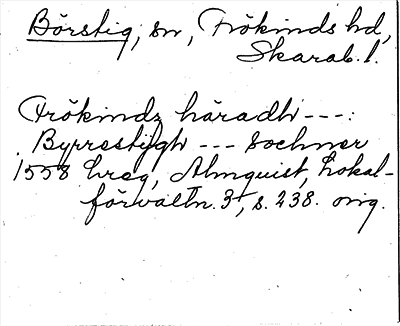 Börstig, sn, Frökinds hd,
Skarab. l.
Frökindz häradh ---:
Byrrestigh --- sochner
1558 Ereg, Almquist, Lokal-
förvaltn. 3, s. 238. orig.